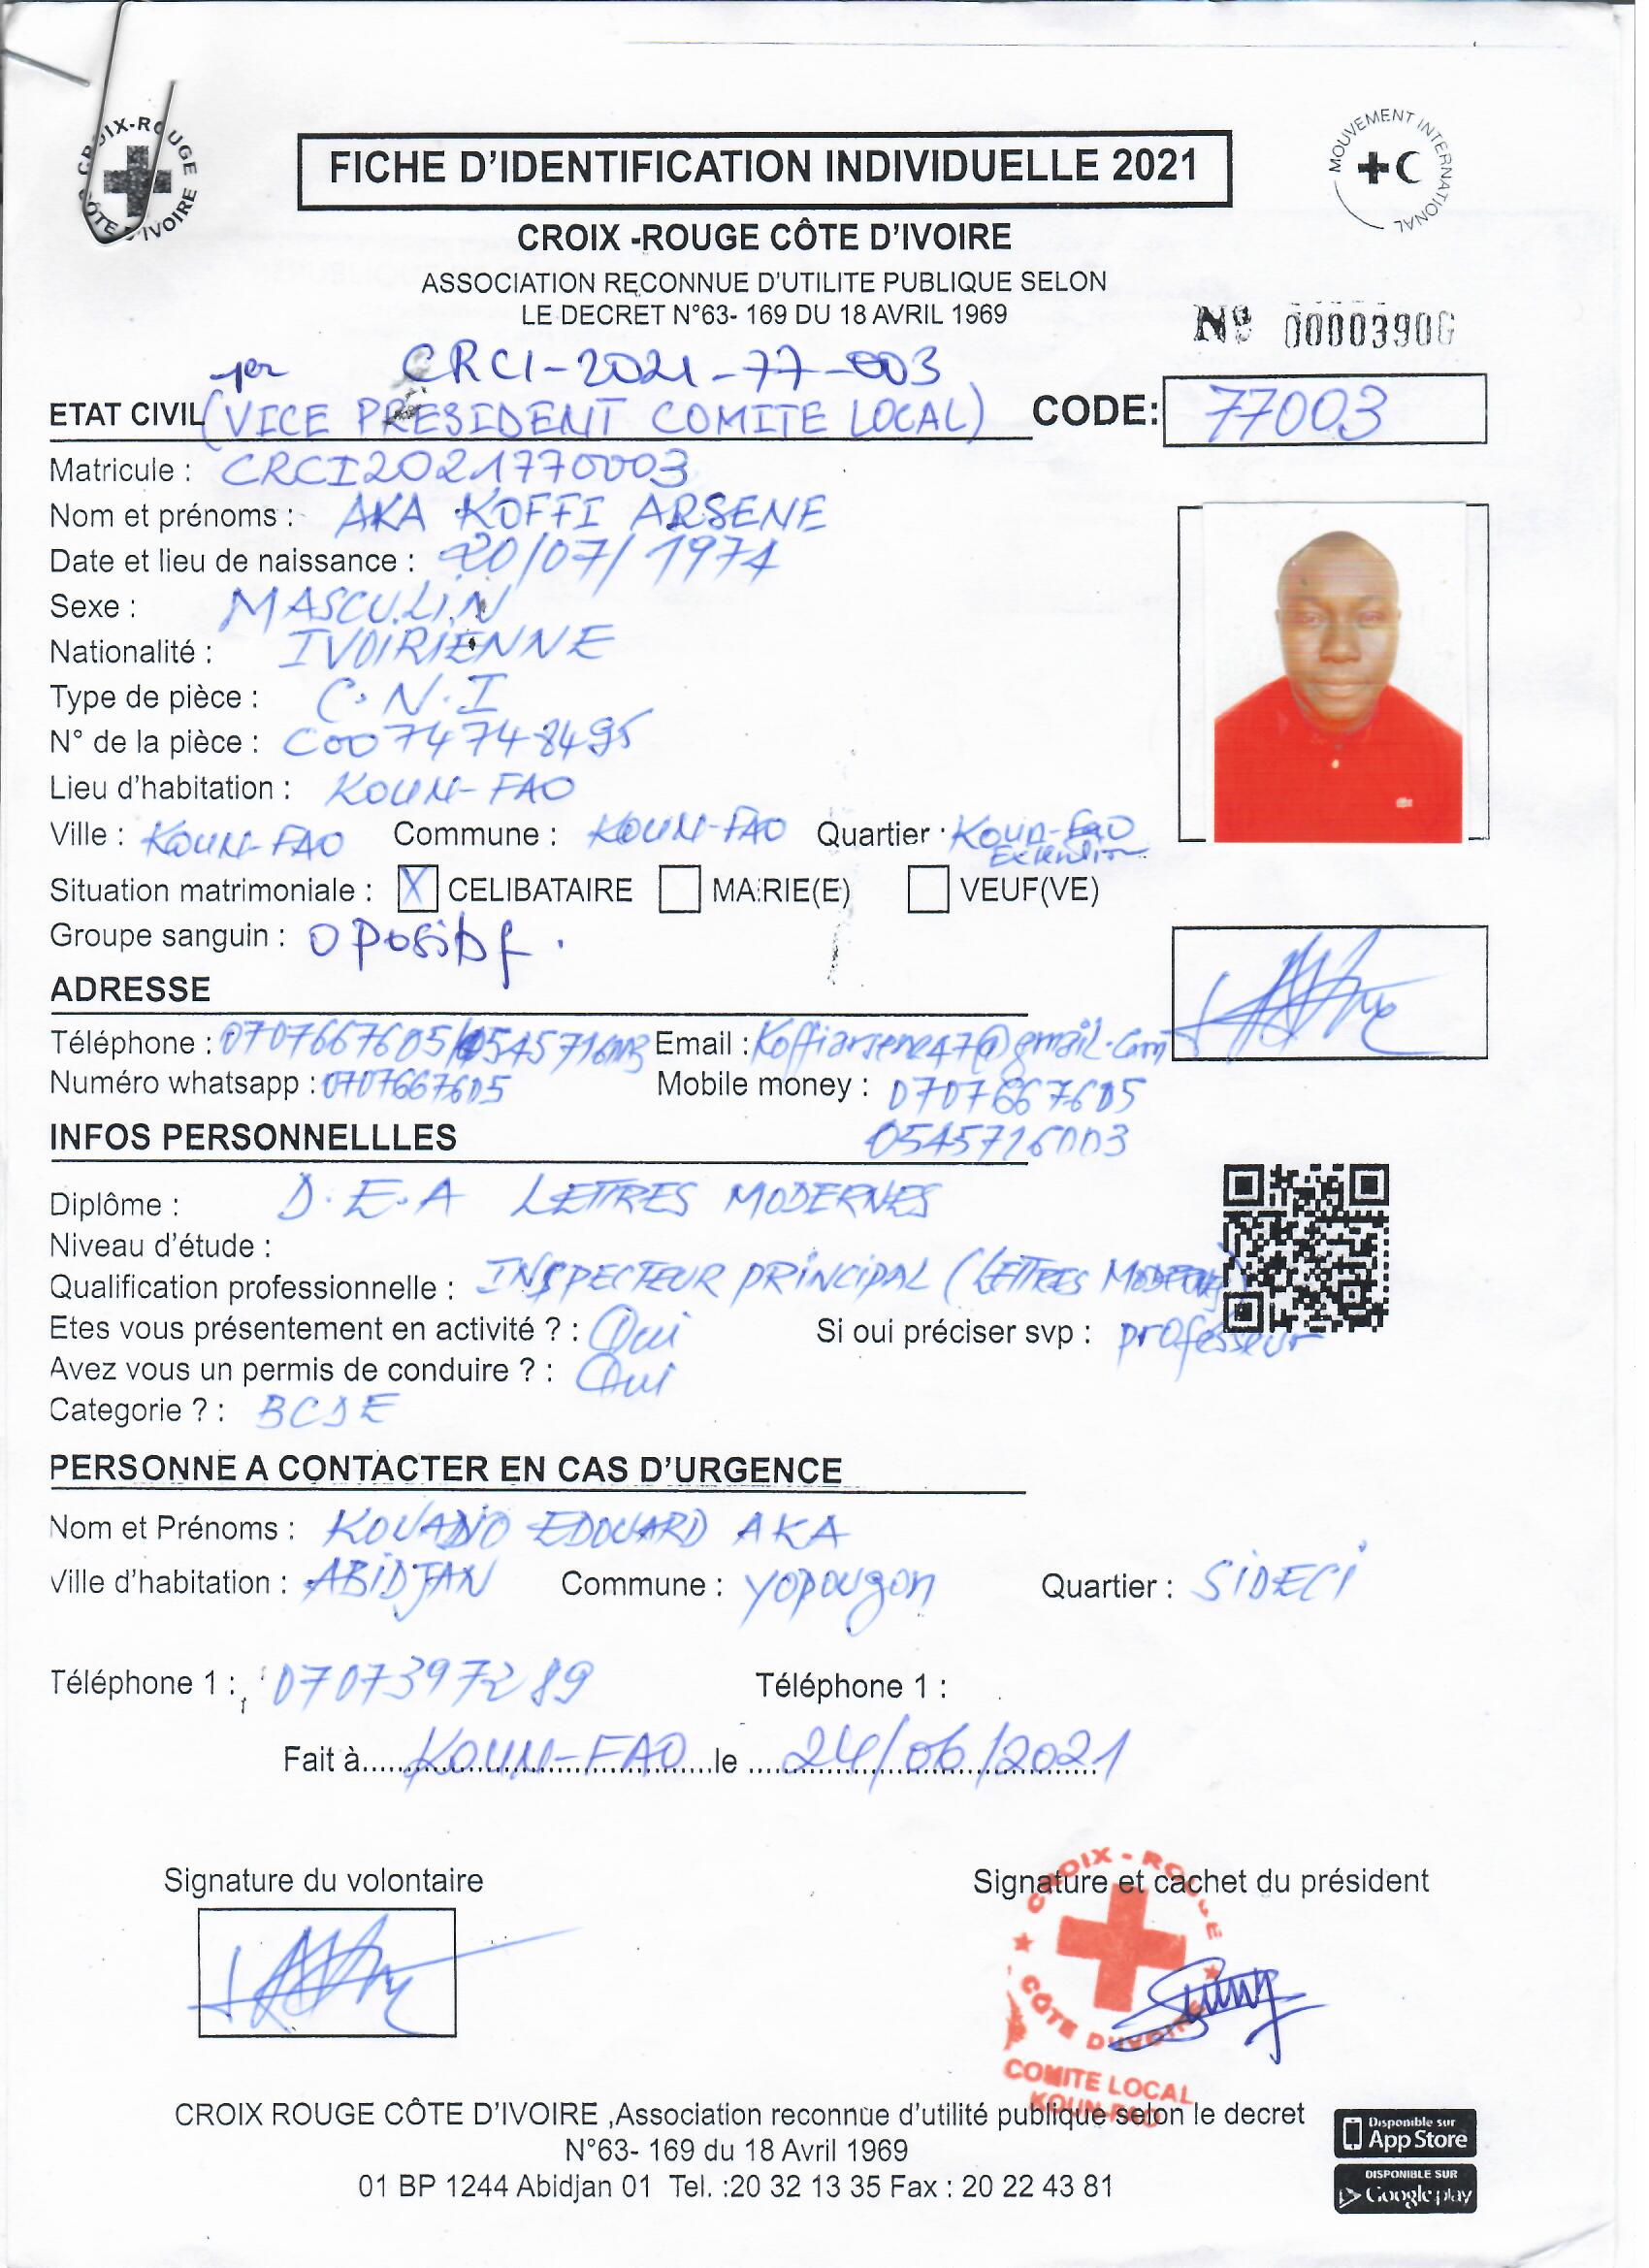 CROIX-ROUGE
CÔTE D'IVOIRE
MOUVEMENT INTERNATIONAL
FICHE D'IDENTIFICATION INDIVIDUELLE 2021
CROIX -ROUGE CÔTE D'IVOIRE
ASSOCIATION RECONNUE D'UTILITE PUBLIQUE SELON
LE DECRET N°63- 169 DU 18 AVRIL 1969
Nº 0000390
1er CRCI-2021-77-003
ETAT CIVIL (VICE PRESIDENT COMITE LOCAL) CODE: 77003
Matricule : CRCI2021770003
Nom et prénoms : AKA KOFFI ARSENE
Date et lieu de naissance : 20/07/1974
Sexe : MASCULIN
Nationalité : IVOIRIENNE
Type de pièce : C.N.I
N° de la pièce : C007474 8495
Lieu d'habitation : KOUN-FAO
Ville : KOUN-FAO Commune : KOUN-FAO Quartier : Koun-Fao
Extention
Situation matrimoniale : X CELIBATAIRE MARIE(E) VEUF(VE)
Groupe sanguin : O Positif.
ADRESSE
Téléphone : 0707667605/0545716003 Email : Koffiarsene47@gmail.com
Numéro whatsapp : 0707667605 Mobile money : 0707667605
INFOS PERSONNELLLES 0545716003
Diplôme : D.E.A LETTRES MODERNES
Niveau d'étude :
Qualification professionnelle : INSPECTEUR PRINCIPAL (LETTRES MODERNES)
Etes vous présentement en activité ? : Oui Si oui préciser svp : professeur
Avez vous un permis de conduire ? : Oui
Categorie ? : BCDE
PERSONNE A CONTACTER EN CAS D'URGENCE
Nom et Prénoms : KOUADIO EDOUARD AKA
Ville d'habitation : ABIDJAN Commune : yopougon Quartier : SIDECI
Téléphone 1 : 0707397289 Téléphone 1 :
Fait à KOUN-FAO le 24/06/2021
Signature du volontaire Signature et cachet du président
CROIX-ROUGE
CÔTE D'IVOIRE
COMITE LOCAL
KOUN-FAO
CROIX ROUGE CÔTE D'IVOIRE ,Association reconnue d'utilité publique selon le decret
N°63- 169 du 18 Avril 1969
01 BP 1244 Abidjan 01 Tel. :20 32 13 35 Fax : 20 22 43 81
Disponible sur
App Store
DISPONIBLE SUR
Google play